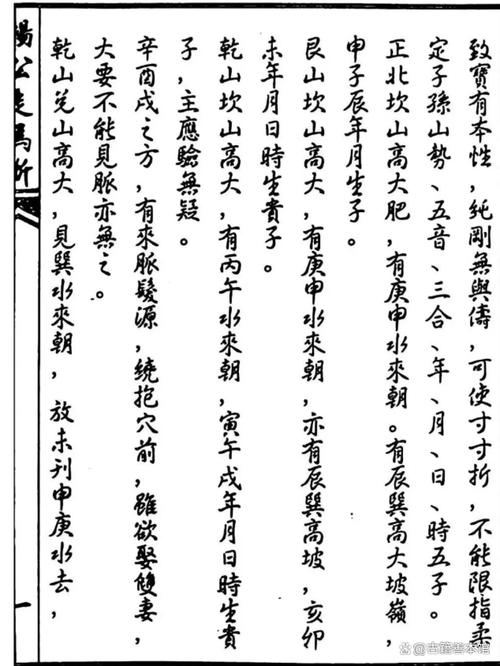 致寶有本性，純剛無與儔，可使寸寸折，不能限指柔
定子孫山勢、五音、三合、年、月、日、時五子。
正北坎山高大肥，有庚申水來朝。有辰巽高大坡嶺，
申子辰年月生子。
艮山坎山高大，有庚申水來朝，亦有辰巽高坡，亥卯
未年月日時生貴子。
乾山坎山高大，有丙午水來朝，寅午戌年月日時生貴
子，主應驗無疑。
辛酉戌之方，有來脈髮源，繞抱穴前，雖欲娶雙妻，
大要不能見脈亦無之。
乾山兌山高大，見巽水來朝，放未刊申庚水去，
楊公走馬斷
一
@古籍善本館